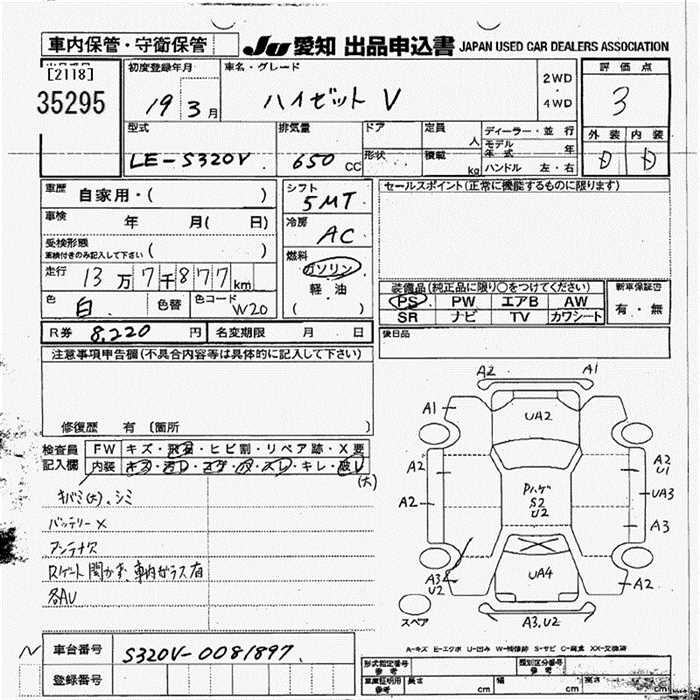 車内保管・守衛保管
JU 愛知 出品申込書 JAPAN USED CAR DEALERS ASSOCIATION
[2118]
35295
初度登録年月 19 3月
車名・グレード ハイゼット V
2WD・4WD
評価点 3
外装 D 内装 D
型式 LE-S320V
排気量 650 CC
ドア 形状
定員 人
積載 kg
ディーラー・並行
モデル年式 年
ハンドル 左・右
車歴 自家用・( )
車検 年 月( 日)
受検形態
車検付きのみ記入して下さい ( )
走行 13万7千877km
色 白 色替 色コード W20
シフト 5MT
冷房 AC
燃料 ガソリン
軽・油
( )
セールスポイント(正常に機能するものに限ります)
装備品(純正品に限り○をつけてください)
PS PW エアB AW
SR ナビ TV カワシート
新車保証書 有・無
後日品
R券 8,220円 名変期限 月 日
注意事項申告欄(不具合内容等は具体的に記入して下さい)
修復歴 有 〔箇所 〕
検査員記入欄
FW キズ・飛石・ヒビ割・リペア跡・X要
内装 キズ・汚レ・コゲ・穴・スレ・キレ・破レ
(大)
キバミ(大)、シミ
バッテリーX
アンテナ欠
Rゲート開かず、車内ガラス有
各AU
車台番号 S320V-0081897
登録番号
A2 A1
A1 UA2
A2 A2 U1
Pハゲ S2 U2
UA3
A2 A3
UA4
A3 U2 A2
スペア A3,U2
A-キズ E-エクボ U-凹み W-補修跡 S-サビ C-腐食 XX-交換済
形式指定番号 参考
類別区分番号 参考
車庫証明用 参考 長さ cm 幅 cm 高さ cm